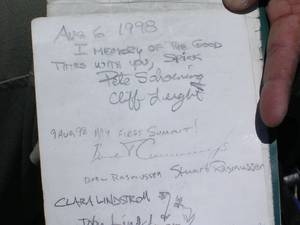 AUG 6 1998
I MEMORY OF THE GOOD
TIMES WITH YOU, SPISK
Pete Schoening
Cliff
9 AUG 98 MY FIRST SUMMIT!
Cummings
DREW RASMUSSEN STUART RASMUSSEN
CLARA LINDSTROM